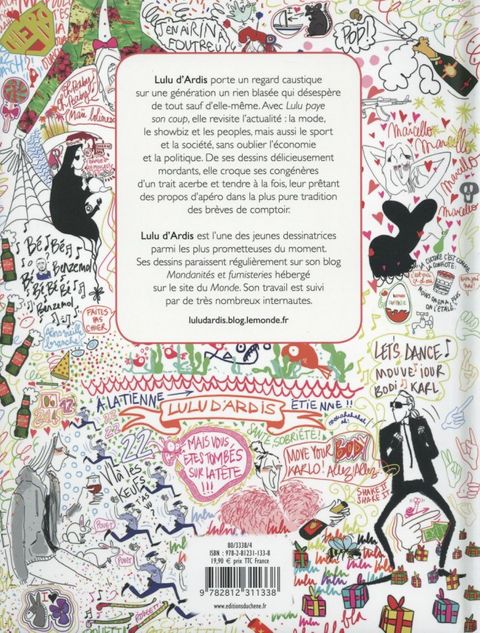 MERCI
J'EN AI RINA
FOUTRE!
POP!
Lulu d'Ardis porte un regard caustique
sur une génération un rien blasée qui désespère
de tout sauf d'elle-même. Avec Lulu paye
son coup, elle revisite l'actualité : la mode,
le showbiz et les peoples, mais aussi le sport
et la société, sans oublier l'économie
et la politique. De ses dessins délicieusement
mordants, elle croque ses congénères
d'un trait acerbe et tendre à la fois, leur prêtant
des propos d'apéro dans la plus pure tradition
des brèves de comptoir.
Lulu d'Ardis est l'une des jeunes dessinatrices
parmi les plus prometteuses du moment.
Ses dessins paraissent régulièrement sur son blog
Mondanités et fumisteries hébergé
sur le site du Monde. Son travail est suivi
par de très nombreux internautes.
luludardis.blog.lemonde.fr
Marcello
Marcello
Marcello
Bé Bé
Benzema!
Bé Bé
Bé Bé!
Benzema!
FAITES
PAS
CHIER
LA CULTURE C'EST COMME
LA CONFITURE
LET'S DANCE
MOUVE IOUR
BODI KARL
À LA TIENNE
LULU D'ARDIS
ETIENNE!!
22
22
MAIS VOUS
ETES TOMBÉS
SUR LA TÊTE
!!!
SOBRIÉTÉ!
MOVE YOUR BODY
KARLO! Alez Alez
SHAKE IT
SHAKE IT
LES
KEUFS
lulu
lulu
lulu
00/3338/4
ISBN : 978-2-81231-133-8
19,90 € prix TTC France
9 782812 311338
www.editionsduchene.fr
bla